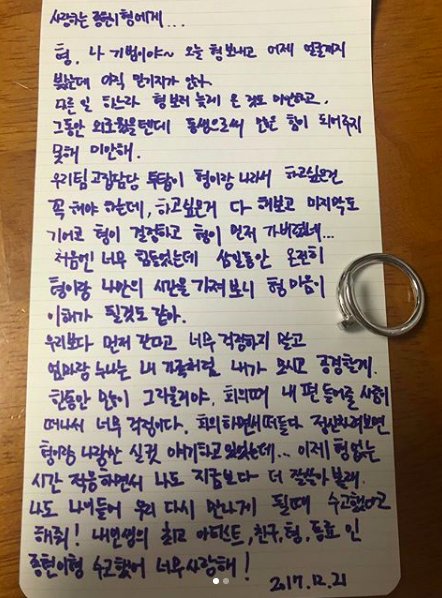 사랑하는 종현이형에게...
형, 나 기범이야~ 오늘 형 보내고 어제 얼굴까지
봤는데 아직 믿기지가 않아.
다른 일 하느라 형 보러 늦게 온 것도 미안하고,
그동안 외로웠을텐데 동생으로써 더 많은 힘이 되어주지
못해 미안해.
우리팀 고집담당 투닥이 형이랑 나라서 하고싶은건
꼭 해야 하는데, 하고싶은거 다 해보고 마지막도
기어코 형이 결정하고 형이 먼저 가버렸네...
처음엔 너무 힘들었는데 삼일동안 온전히
형이랑 나만의 시간을 가져보니 형 마음이
이해가 될것도 같아.
우리보다 먼저 간다고 너무 걱정하지 말고
엄마랑 누나는 내 가족처럼 내가 모시고 공경할게.
한동안 많이 그리울거야. 회의때 내 편 들어줄 사람이
떠나서 너무 걱정이다. 회의하면서 떠들다 정신차려보면
형이랑 나랑만 실컷 얘기하고 있었는데... 이제 형 없는
시간 적응하면서 나도 지금보다 더 잘 살아볼래.
나도 나이들어 우리 다시 만나게 될때 수고했다고
해줘! 내 인생의 최고 아티스트, 친구, 형, 동료 인
종현이형 수고했어 너무 사랑해!
2017.12.21